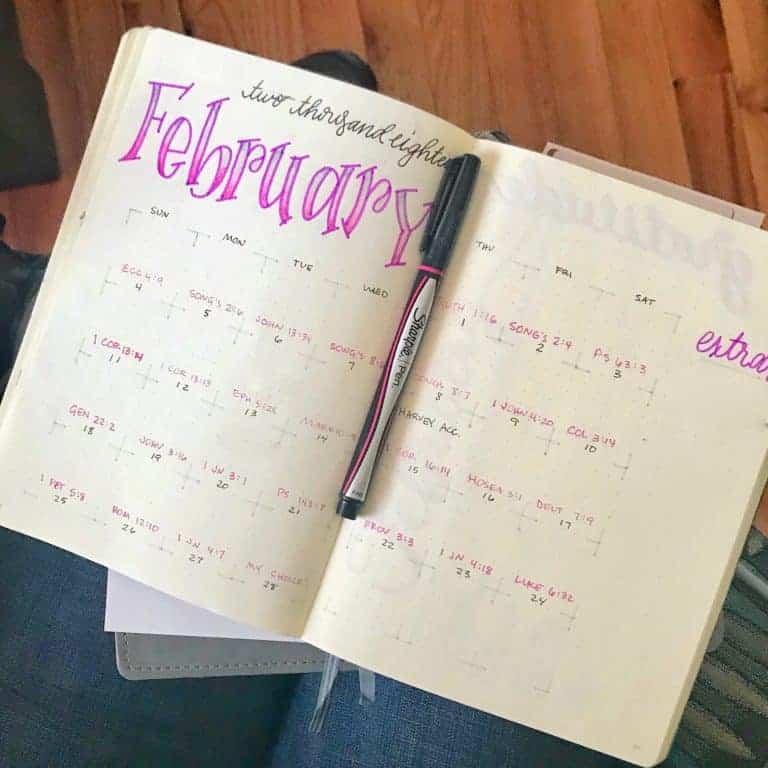 two thousand eightee
February
SUN MON TUE WED
ECC 4:9 SONG'S 2:6 JOHN 13:34 SONG'S 8:6
4 5 6 7
1 COR 13:14 1 COR 13:13 EPH 5:25 MARK
11 12 13 14
GEN 22:2 JOHN 3:16 1 JN 3:1 PS 143:8
18 19 20 21
1 PET 5:8 ROM 12:10 1 JN 4:7 MY CHOICE
25 26 27 28
Sharpie Pen
THU FRI SAT
RUTH 1:16 SONG'S 2:4 PS 63:3
1 2 3
SONGS 8:7 1 JOHN 4:20 COL 3:14
8 9 10
HARVEY ACC.
1 COR. 16:14 HOSEA 3:1 DEUT 7:9
15 16 17
PROV 3:3 1 JN 4:18 LUKE 6:32
22 23 24
extra
gratitude